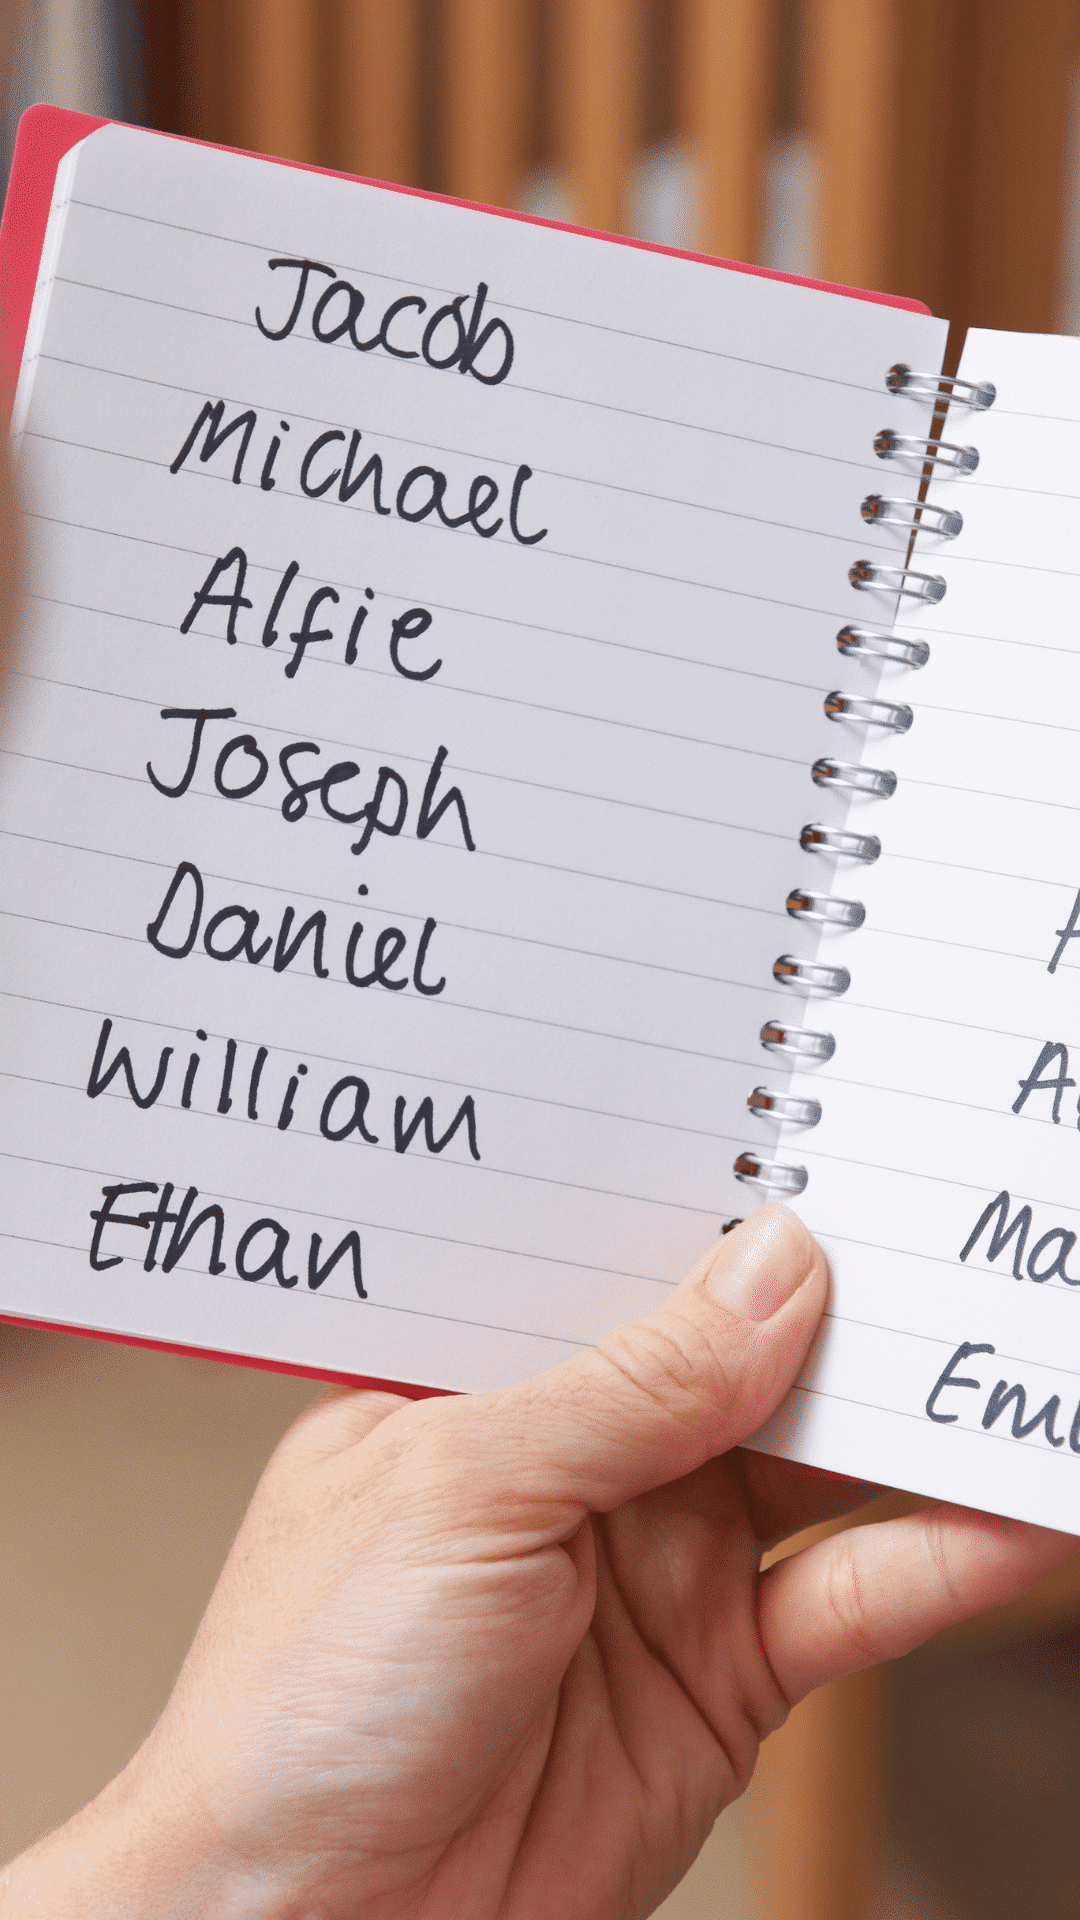 Jacob
Michael
Alfie
Joseph
Daniel
William
Ethan